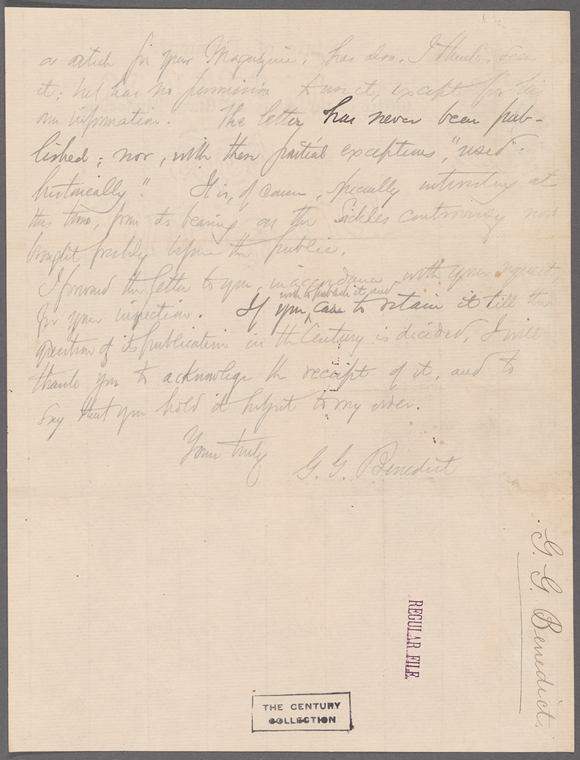 an article for your Magazine, has also, I think, seen
it; but has no permission to use it, except for his
own information. The letter has never been pub-
lished; nor, with these partial exceptions, "used
historically." It is, of course, specially interesting at
this time, from its bearing on the Sickles controversy now
brought freshly before the public.
I forward the letter to you, in accordance with your request
for your inspection. If you
wish to publish it, and
care to retain it till the
question of its publication in the Century is decided, I will
thank you to acknowledge the receipt of it, and to
say that you hold it subject to my order.
Yours truly
G. G. Benedict
G. G. Benedict.
REGULAR FILE
THE CENTURY
COLLECTION